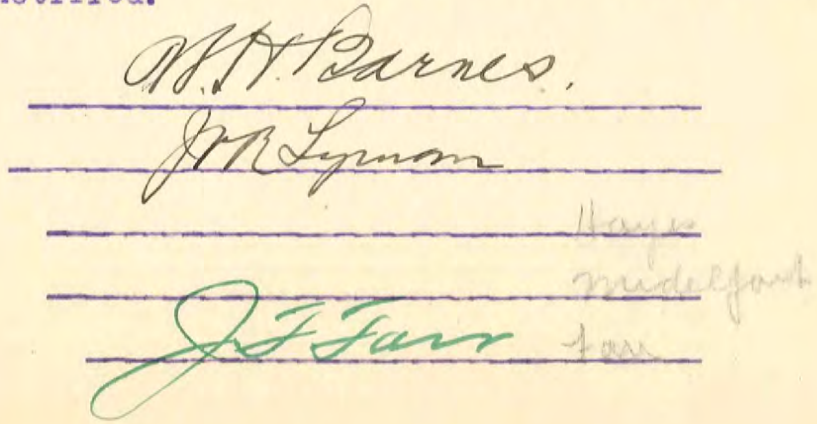 W. H. Barnes.
J V R Lyman
Hayes
Midelfart
J F Farr
Farr